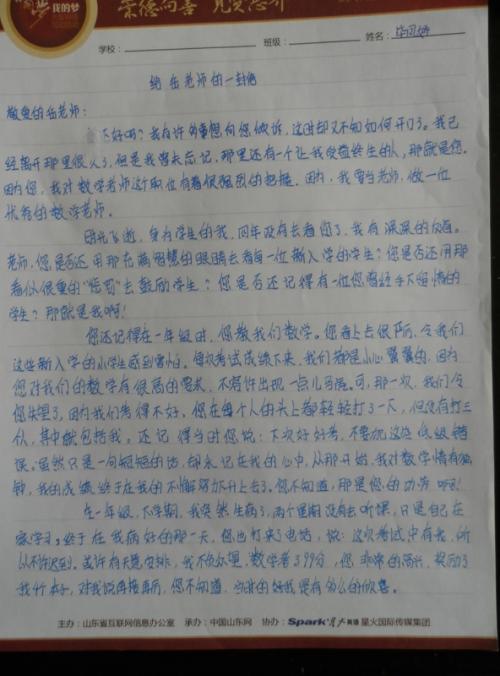 我的梦 崇德向善
学校： 班级： 姓名：
给岳老师的一封信
敬爱的岳老师：
还好吗？我有许多事想向您倾诉，这时却又不知如何开口了。我已
经离开那里很久了，但是我曾未忘记，那里还有一个让我受益终生的人，那就是您。
因为您，我对数学老师这个职位有着很强烈的，因为，我要当老师，做一位
优秀的数学老师。
时光飞逝，身为学生的我，四年没有去看您了，我有深深的
老师，您是否还用那充满智慧的眼睛去看每一位新入学的学生？您是否还用那
看似很重的“惩罚”去鼓励学生？您是否还记得有一位您曾经手下留情的
学生？那就是我啊！
您还记得在一年级时，您教我们数学。您看上去很严厉，令我们
这些新入学的小学生感到害怕。每次考试成绩下来，我们都是小心翼翼的，因为
您对我们的数学有很高的要求，不容许出现一点儿马虎。可，那一次，我们令
您失望了，因为我们考得不好。您在每个人的头上都轻轻打了一下，但没有打三
个人，其中就包括我。还记得当时您说：下次好好考，不要犯这些低级错
误。虽然只是一句短短的话，却永记在我的心中，从那开始，我对数学情有独
钟，我的成绩终于在我的不懈努力下升上去了。您不知道，那是您的功劳啊！
在一年级，下学期，我突然生病了，两个星期没有去听课，只是自己在
家学习。终于在我病好的那一天，您也打来了电话，说：这次考试中有我，所
以不许迟到。或许有天意安排，我不负众望，数学考了99分，您非常的高兴，奖励了
我几个本子，对我说再接再厉，您不知道，当时的我是有多么的欣喜。
主办：山东省互联网信息办公室 承办：中国山东网 协办：Spark 星火英语 星火国际传媒集团